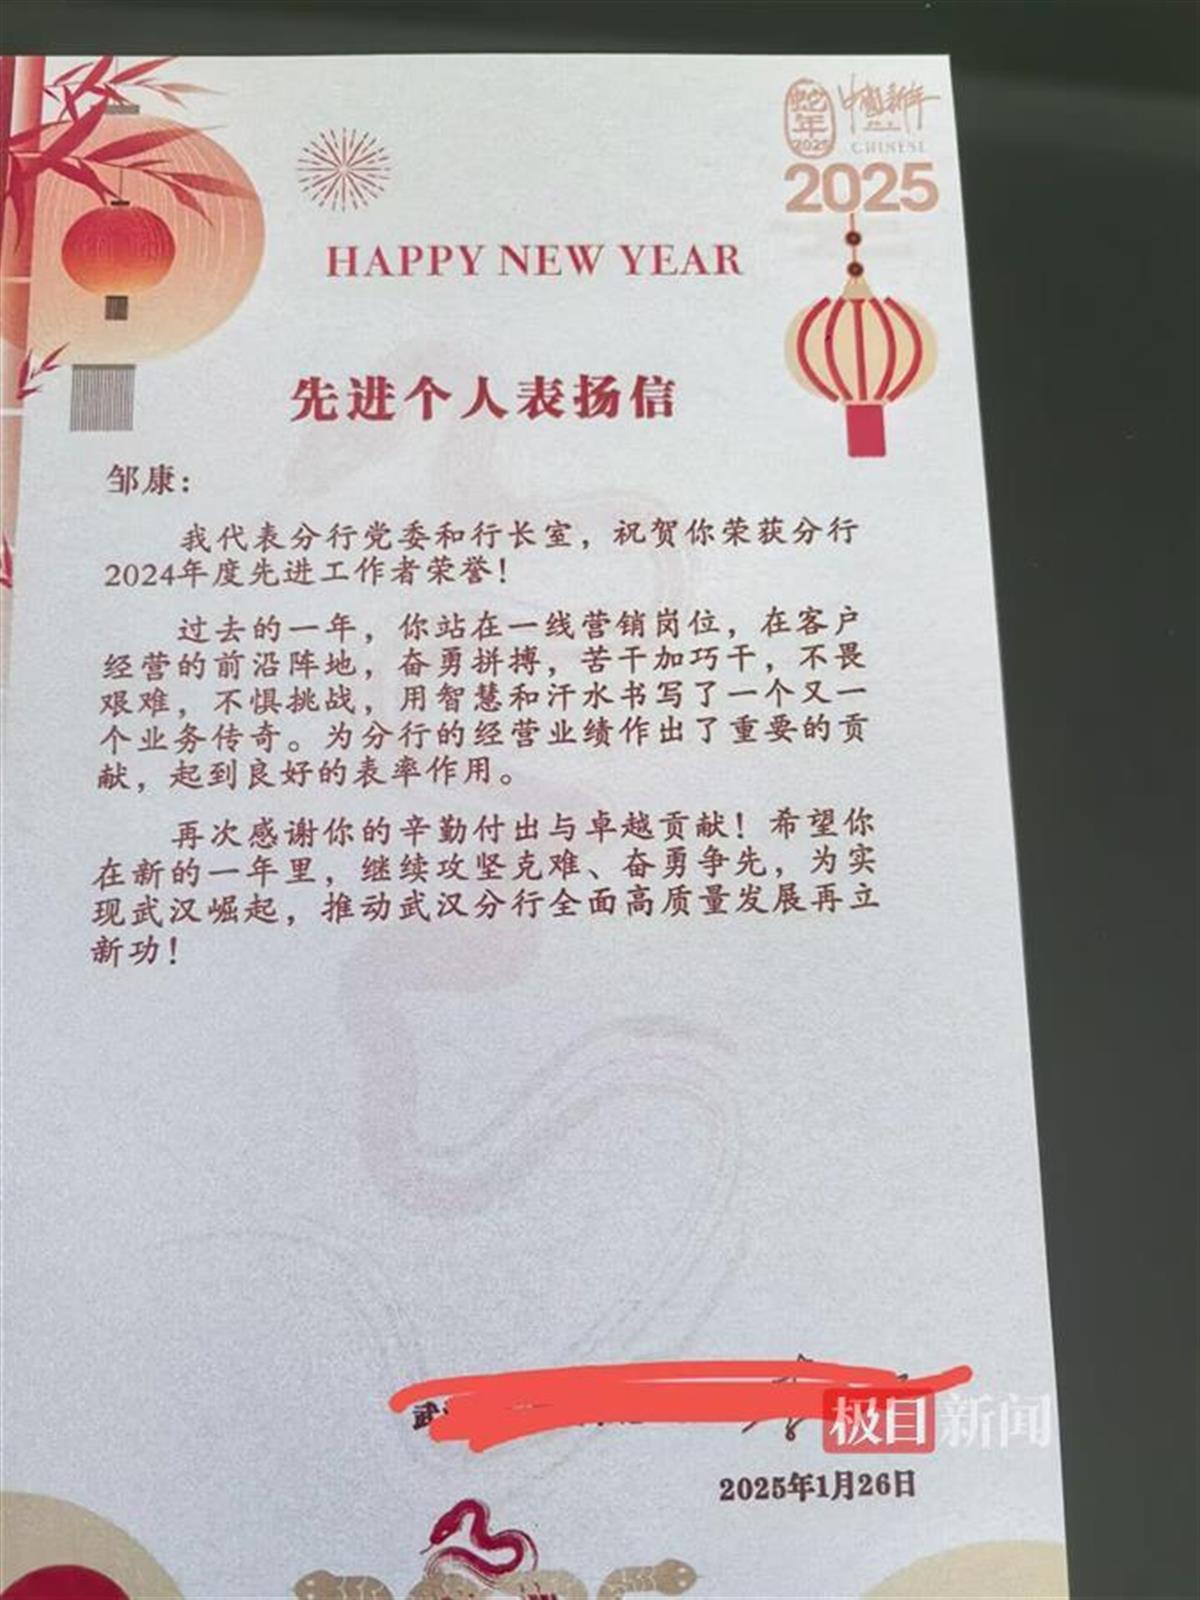 蛇年
2025
中国新年
CHINESE
2025
HAPPY NEW YEAR
先进个人表扬信
邹康：
我代表分行党委和行长室，祝贺你荣获分行
2024年度先进工作者荣誉！
过去的一年，你站在一线营销岗位，在客户
经营的前沿阵地，奋勇拼搏，苦干加巧干，不畏
艰难，不惧挑战，用智慧和汗水书写了一个又一
个业务传奇。为分行的经营业绩作出了重要的贡
献，起到良好的表率作用。
再次感谢你的辛勤付出与卓越贡献！希望你
在新的一年里，继续攻坚克难、奋勇争先，为实
现武汉崛起，推动武汉分行全面高质量发展再立
新功！
极目新闻
2025年1月26日